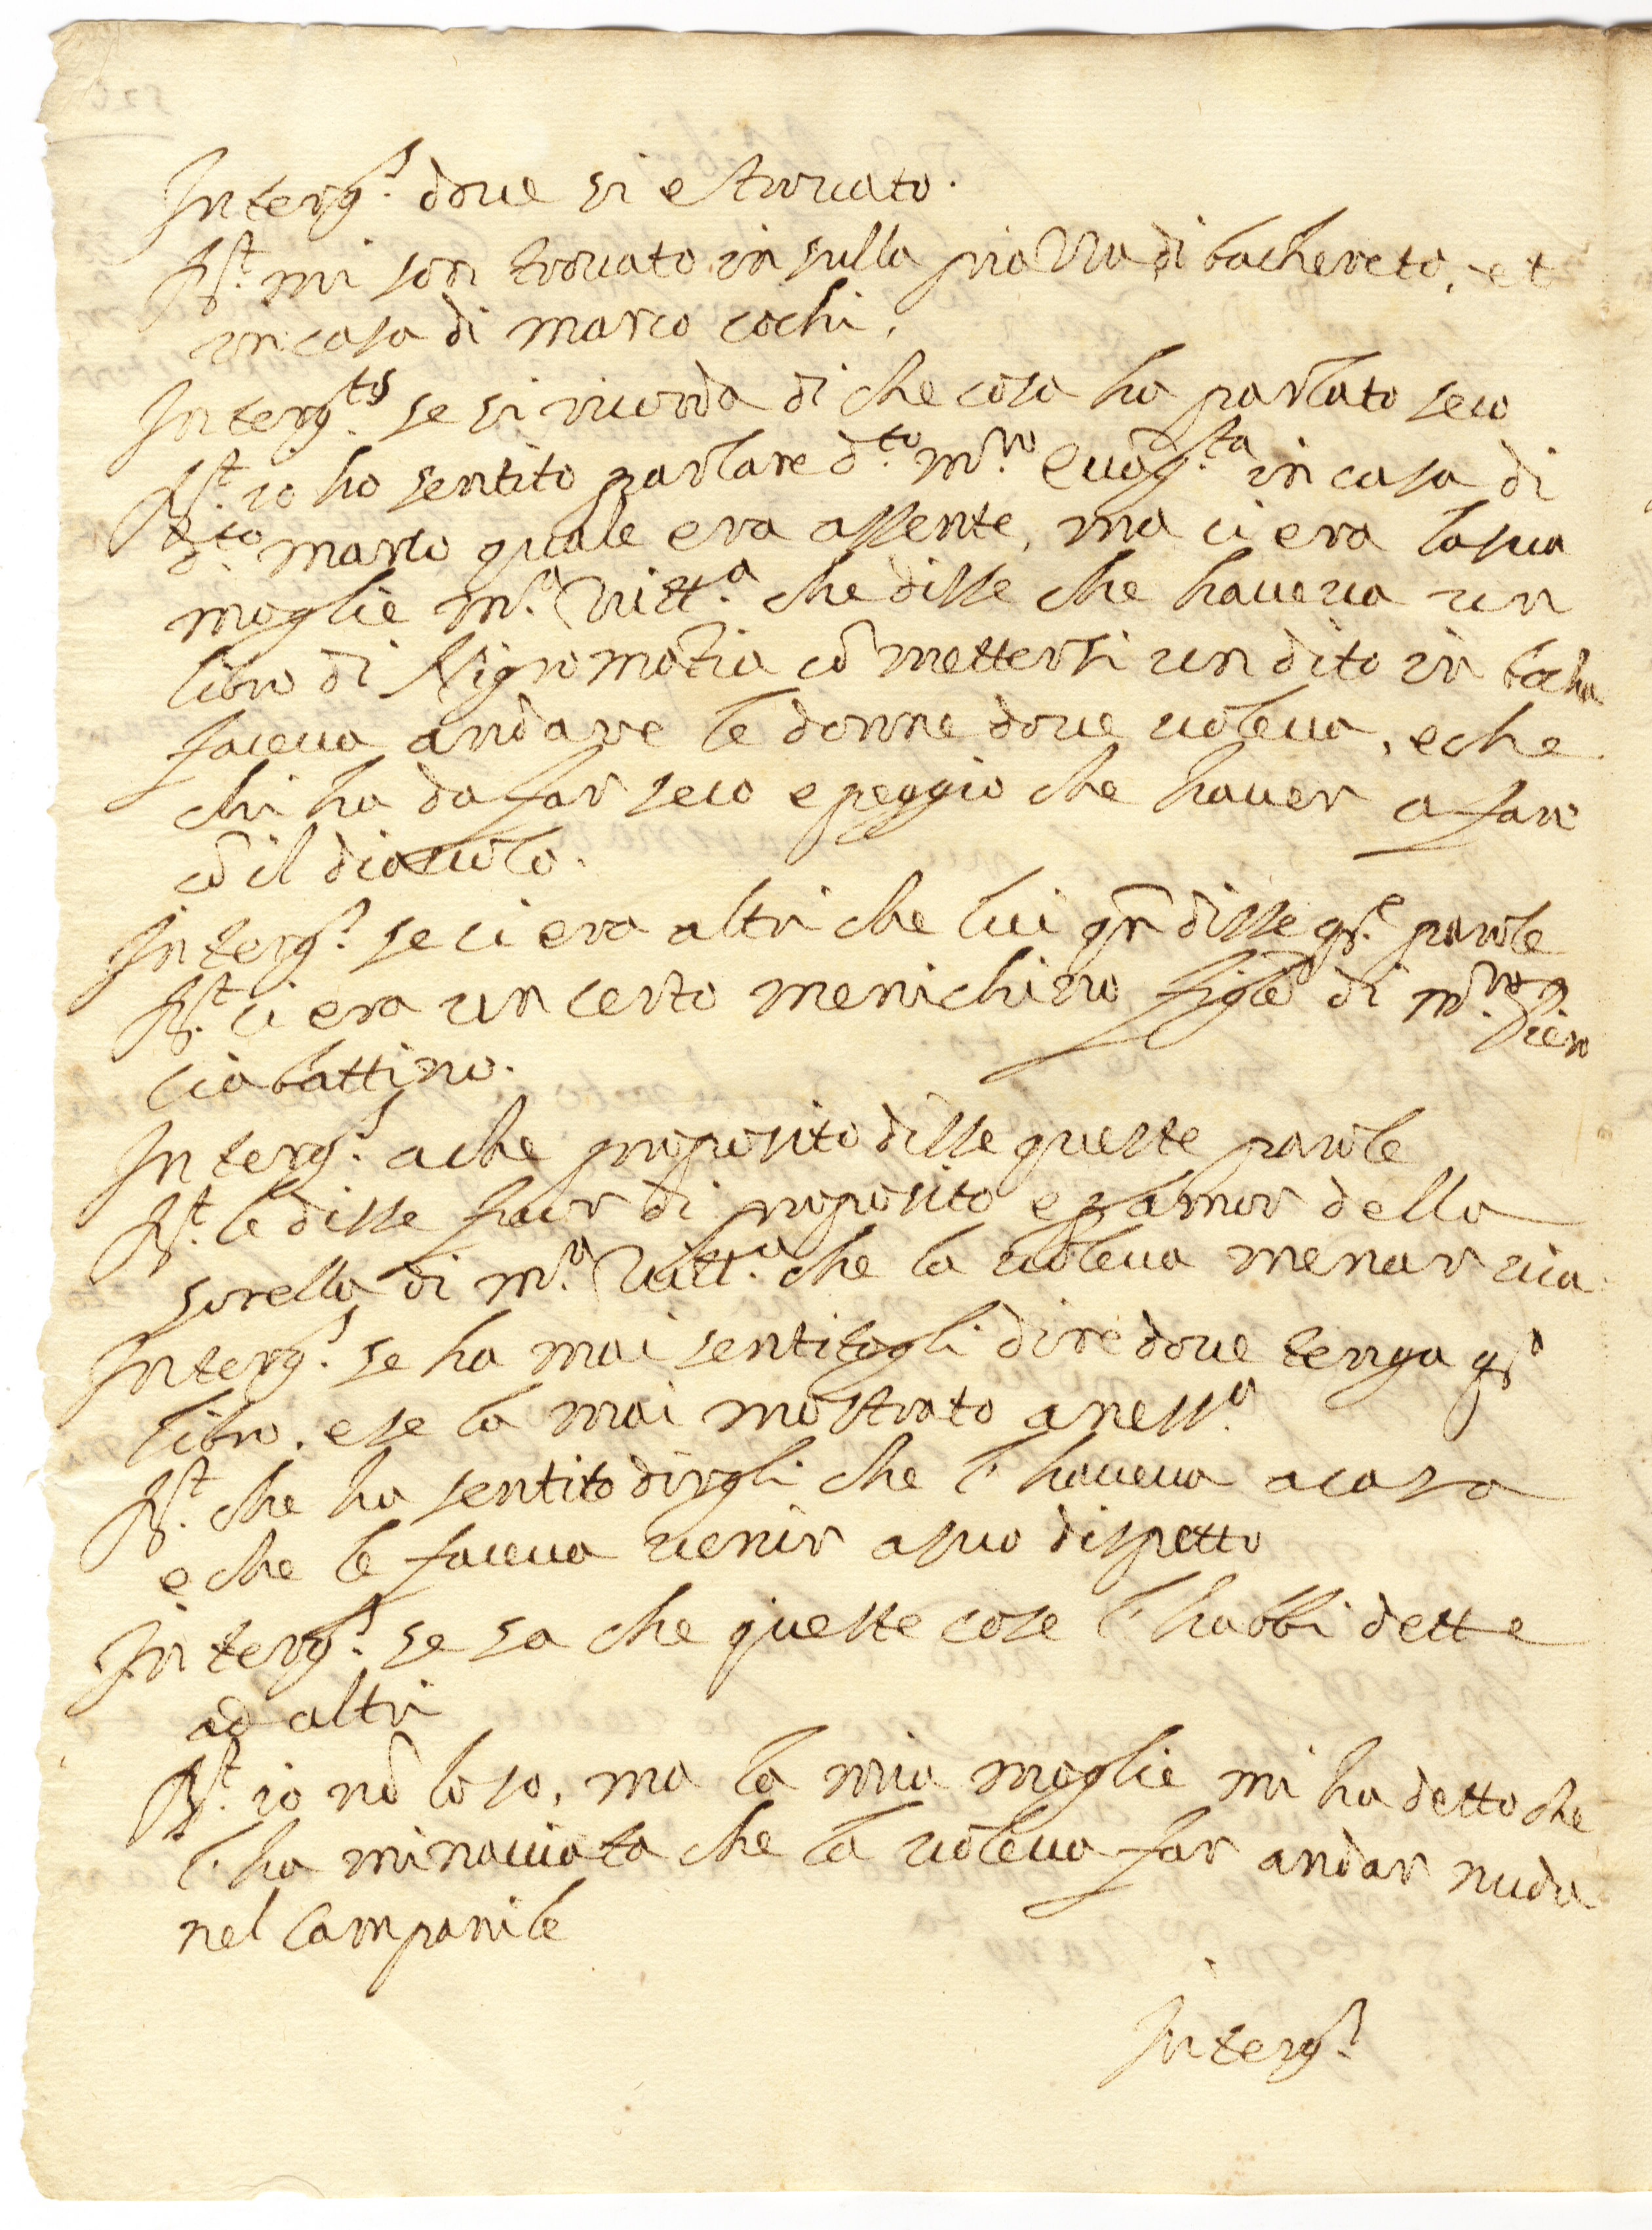 Interg.s dove si e trovato.
R.t mi son trovato in sulla piazza di bachereto, et
in casa di marco cochi.
Interg.ts se si ricorda di che cosa ha parlato seco
R.t io ho sentito parlare d.to m.ro in casa di
d.to marco quale era assente, ma ci era la sua
moglie m.a Vitt.a che disse che haveva un
libro di Nigromãtia cõ mettersi un dito in bocha
faceva andare le donne dove voleva, e che
chi ha da far seco e peggio che haver a fare
cõ il diavolo.
Interg.s se ci era altri che lui qñ disse qs.e parole
R.t ci era un certo menichino figlõ di m.ro Piero
ciabattino.
Interg.s a che proposito disse queste parole
R.t le disse fuor di proposito e p amor della
sorella di m.a Vitt.a che la voleva menar via.
Interg.s se ha mai sentitogli dire dove tenga qs.o
libro. e se la mai mostrato a ness.o
R.t che ha sentito dirgli che l'haveva a casa
e che le faceva venir a suo dispetto
Interg.s se sa che queste cose l'habbi dette
ad altri
R.t io nõ lo so, ma la mia moglie mi ha detto che
l'ha minacciata che la voleva far andar nuda
nel Campanile
Interg.s